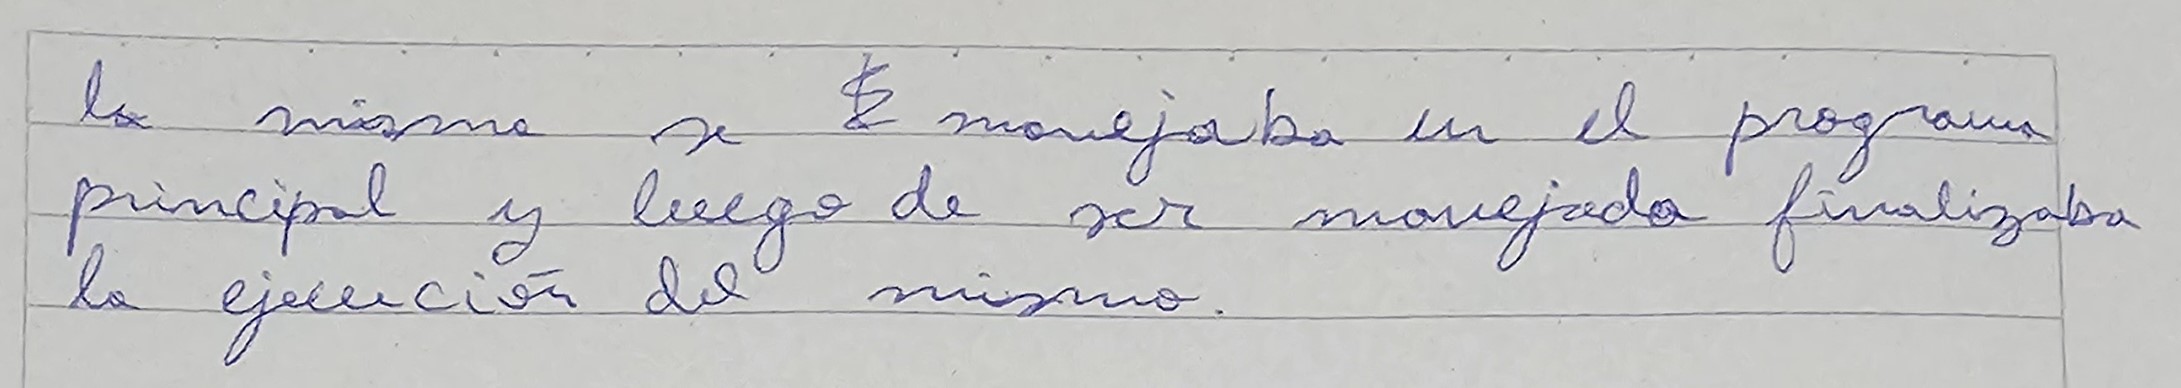 la misma se manejaba en el programa
principal y luego de ser manejada finalizaba
la ejecución del mismo.